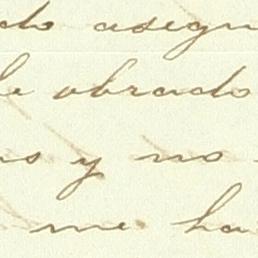 do asegu
le obrado
os y no
me ha